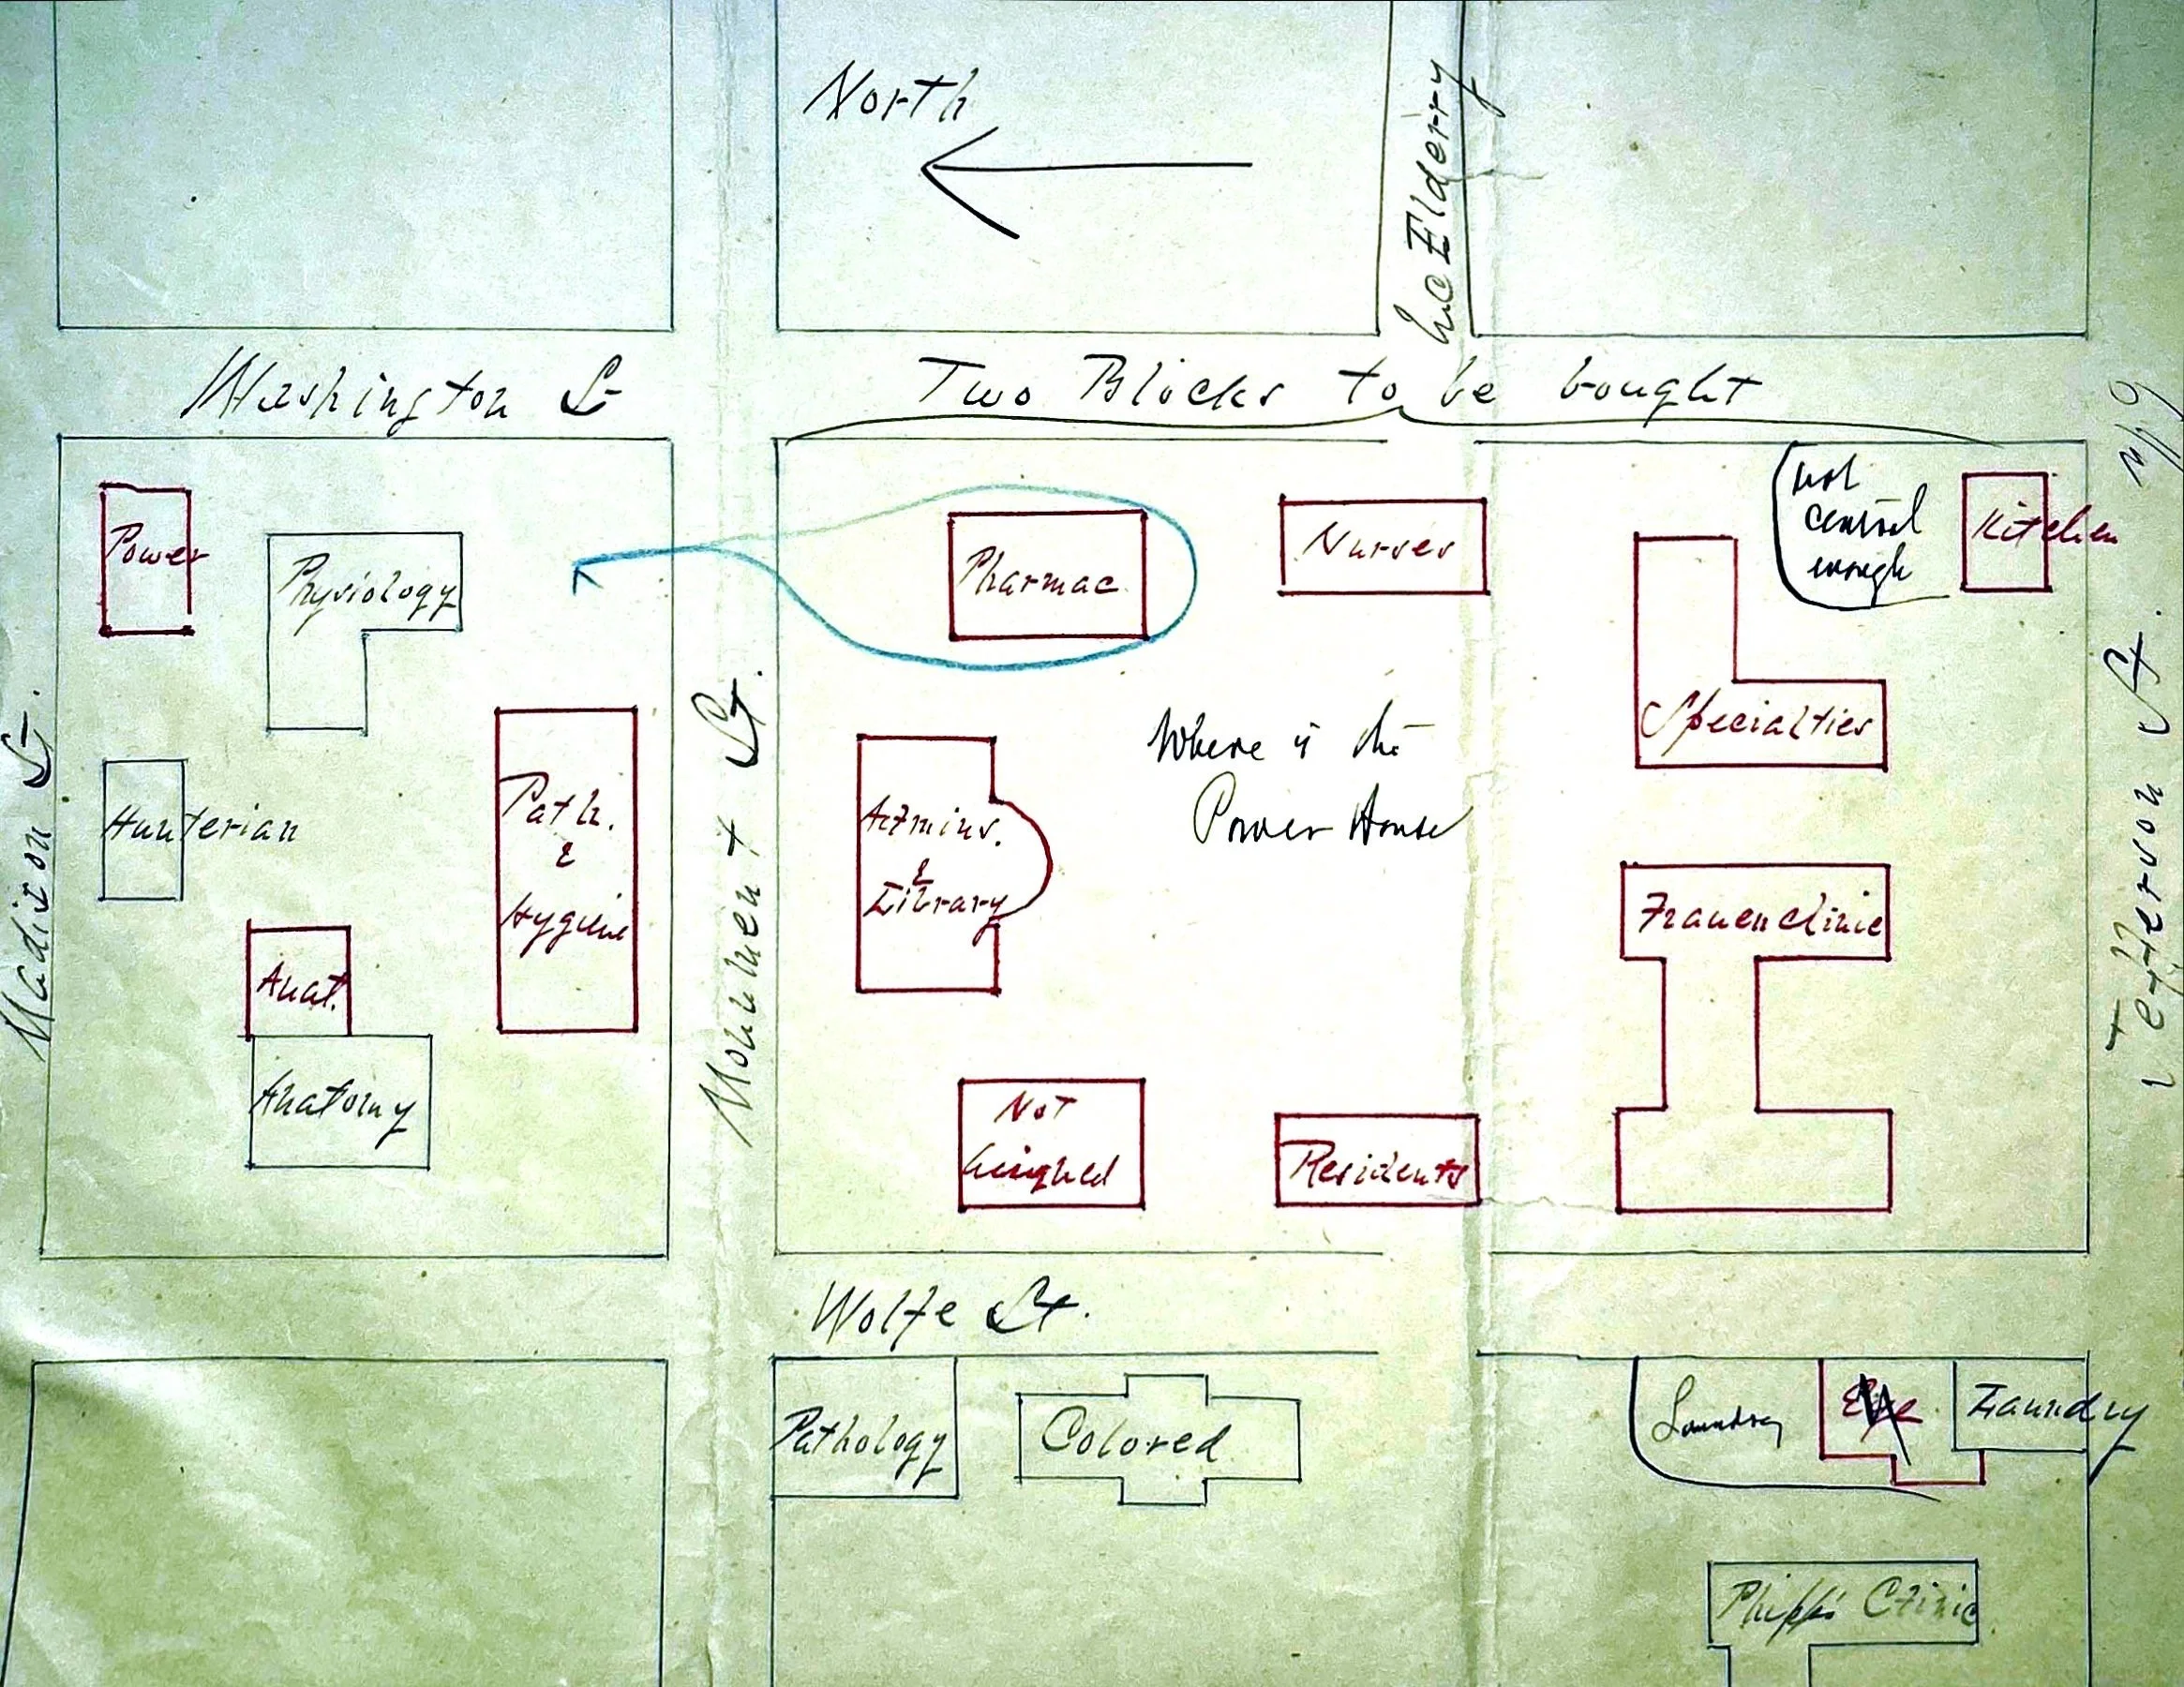 North
McElderry
Washington St
Two Blocks to be bought
Power
Physiology
Pharmac.
Nurses
not
central
enough
Kitchen
Specialties
Madison St.
Hunterian
Path.
&
Hygiene
Monument St.
Admins.
&
Library
Where is the
Power House
Frauenclinic
Jefferson St.
Anat.
Anatomy
Not
Residents
Wolfe St.
Pathology
Colored
Laundry
Eye
Laundry
Phipps Clinic